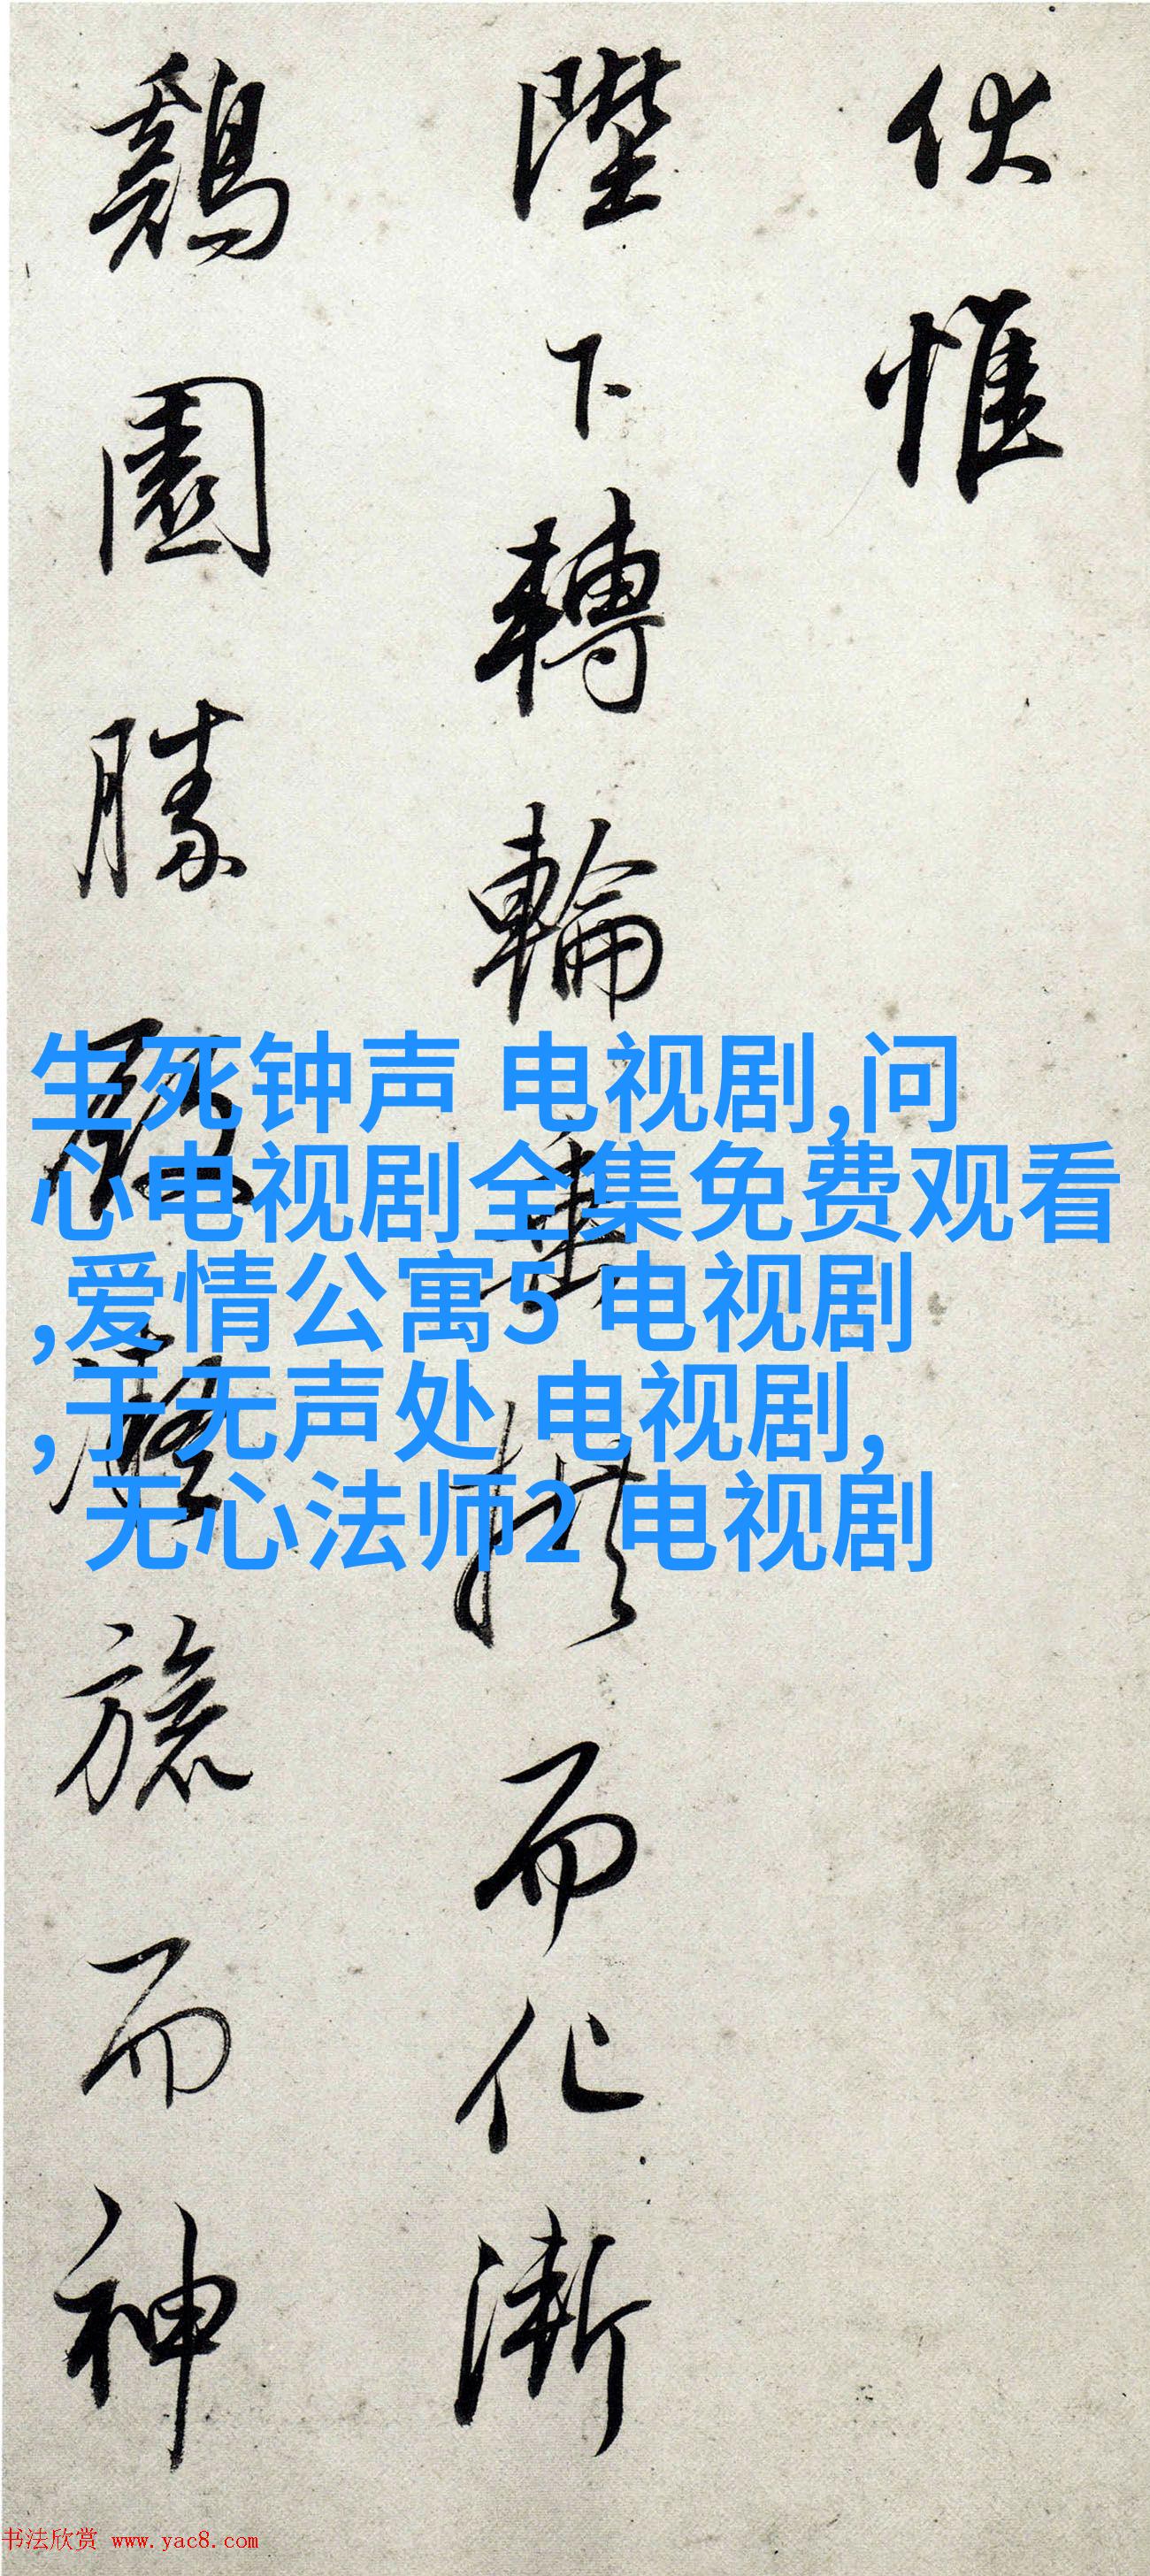 伏惟
陛下轉輪垂拱而化漸
鷄園勝殿凝旒而神
生死钟声 电视剧,问
心电视剧全集免费观看
,爱情公寓5 电视剧
,于无声处 电视剧,
无心法师2 电视剧
书法欣赏 www.yac8.com